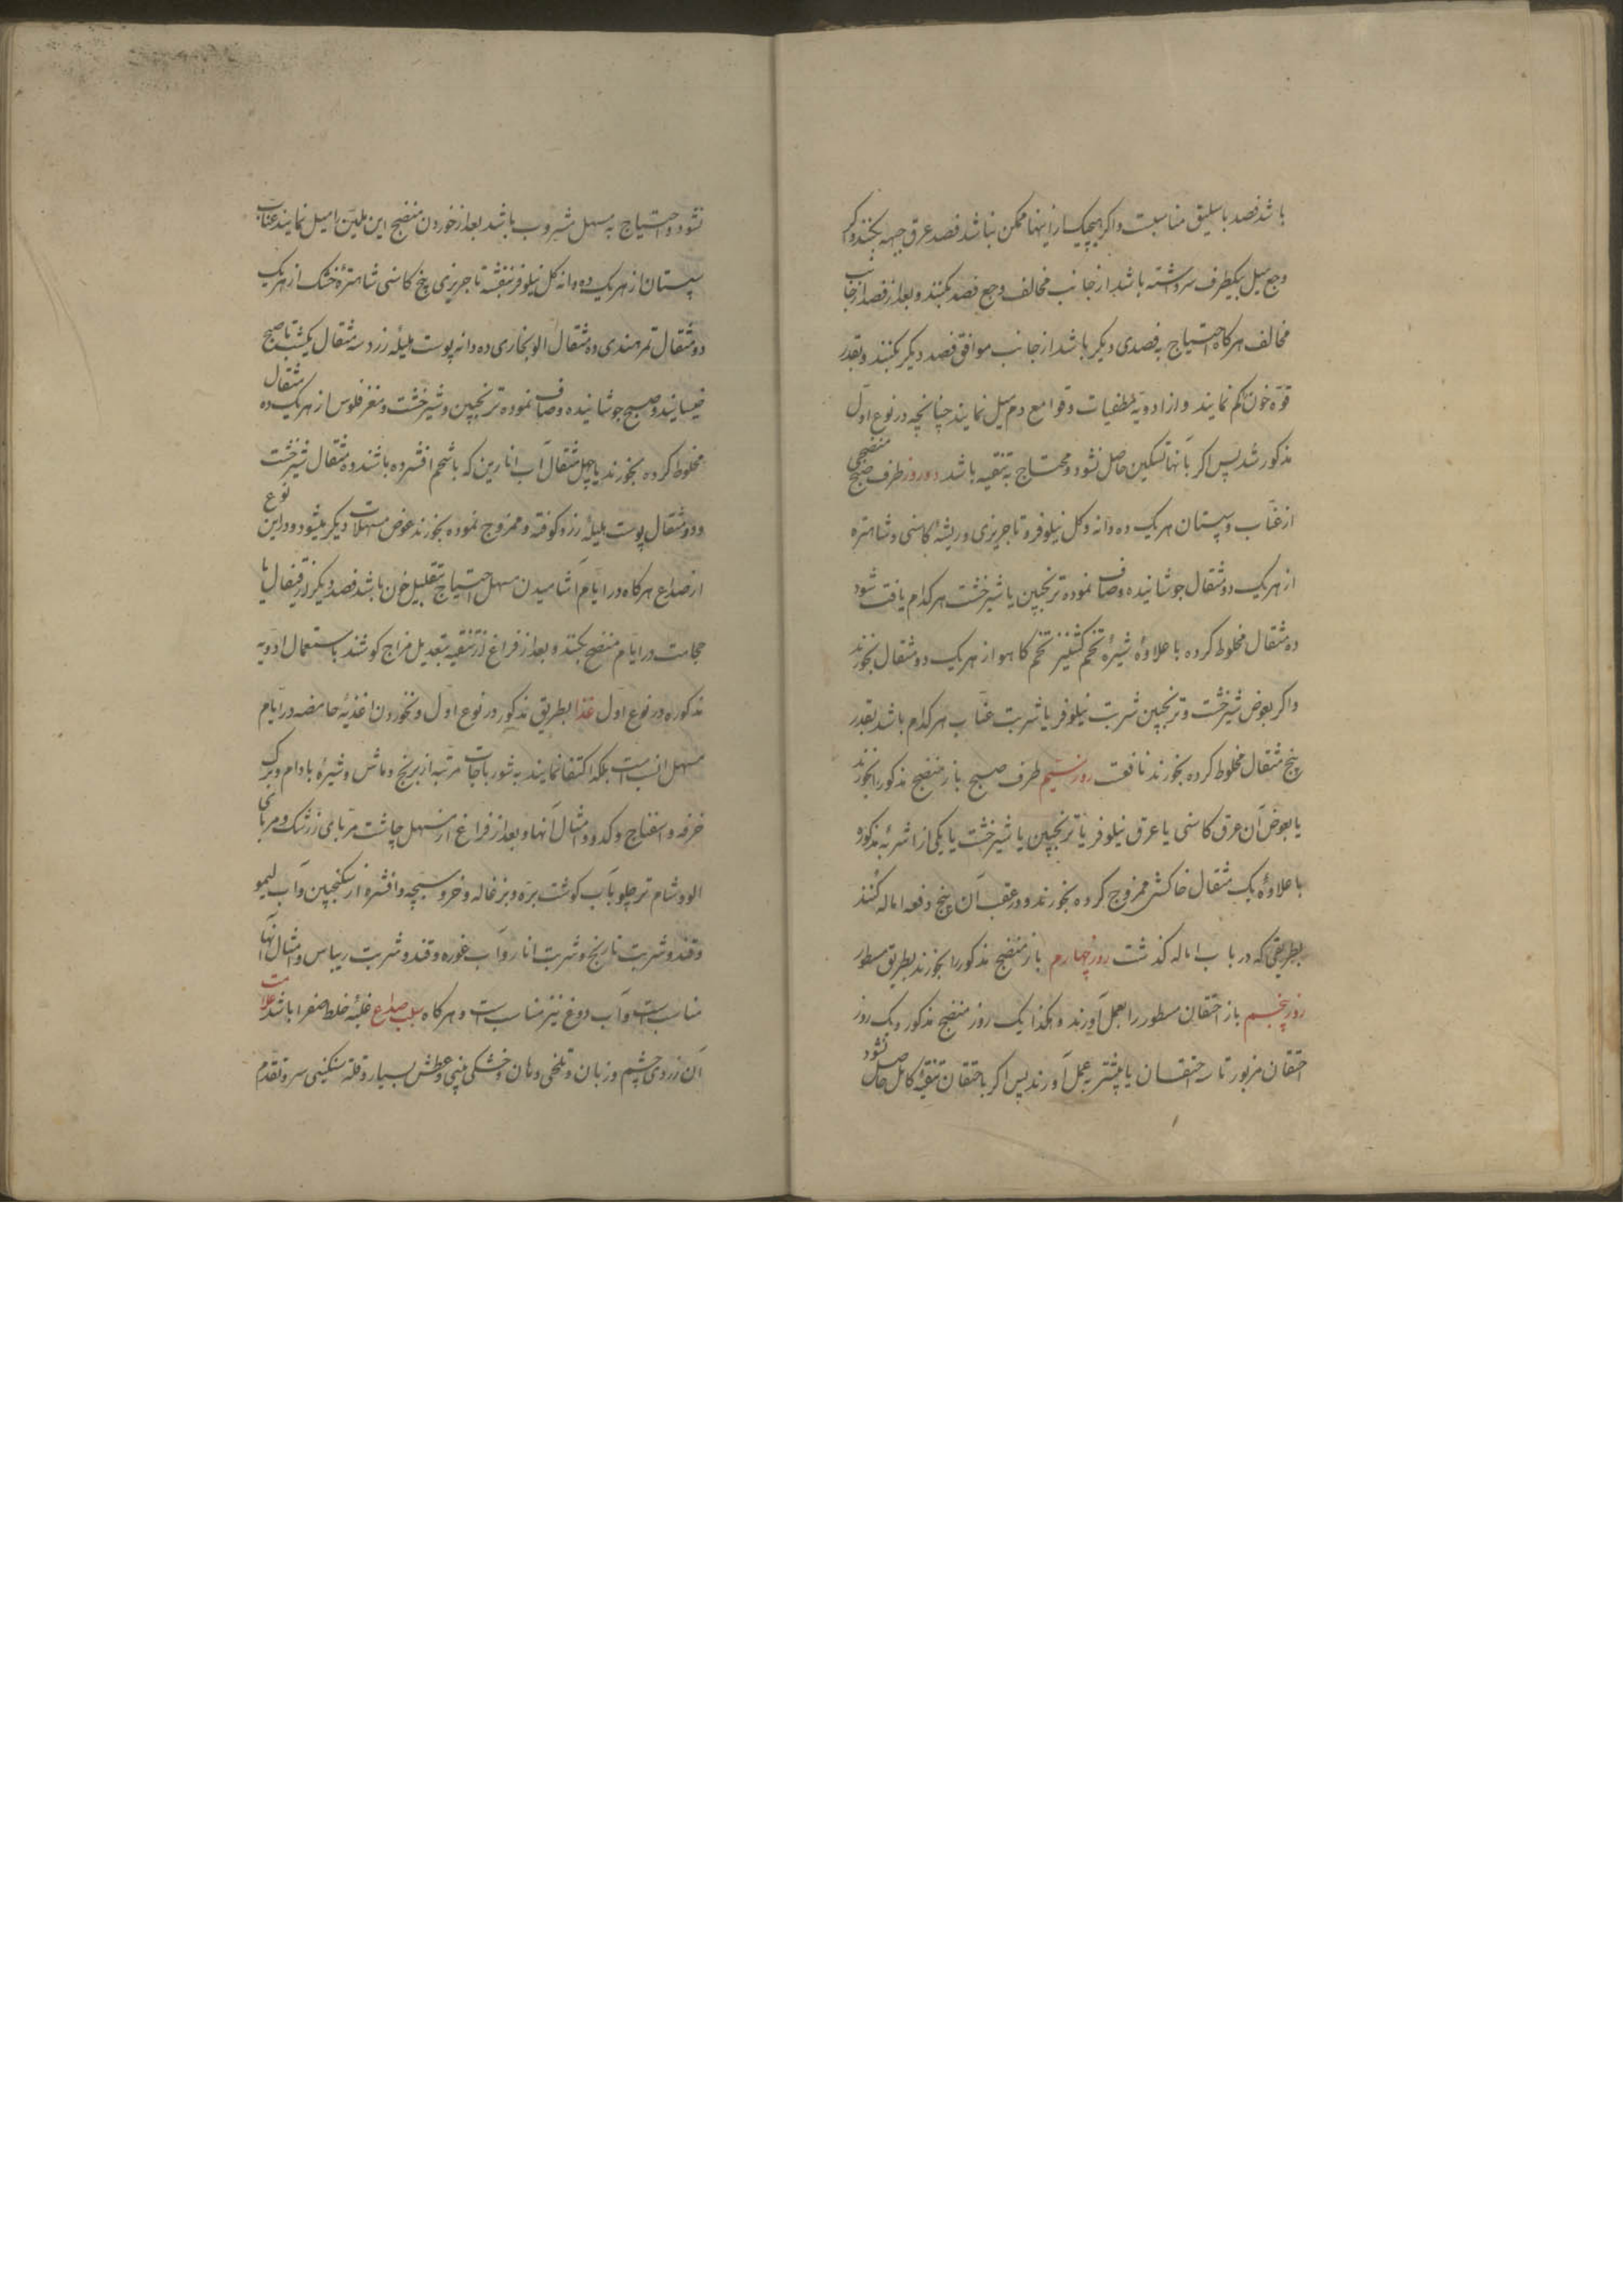 باشد فصد باسلیق مناسبست و اگر هیچیک از اینها ممکن نباشد فصد عرق جبهه بکنند و اگر
وجع میل بیکطرف سر داشته باشد از جانب مخالف وجع فصد بکنند و بعد از فصد از جانب
مخالف هرگاه احتیاج به فصدی دیگر باشد از جانب موافق فصد دیگر بکنند و بقدر
قوّه خون کم نمایند و از ادویهٔ مطفیات و قوامع دم میل نمایند چنانچه در نوع اوّل
مذکور شد پس اگر بآنها تسکین حاصل نشود و محتاج به تنقیه باشد دو روز طرف صبح منضجی
از عنّاب و سپستان هریک ده دانه و گل نیلوفر و تاجریزی و ریشهٔ کاسنی و شاهتره
از هریک دو مثقال جوشانیده و صاف نموده ترنجبین یا شیرخشت هرکدام یافت شود
ده مثقال مخلوط کرده با علاوهٔ شیرهٔ تخم گشنیز تخم کاهو از هریک دو مثقال بخورند
و اگر بعوض شیرخشت و ترنجبین شربت نیلوفر یا شربت عنّاب هرکدام باشد بقدر
پنج مثقال مخلوط کرده بخورند نافعست روز سیّم طرف صبح باز منضج مذکور را بخورند
یا بعوض آن عرق کاسنی یا عرق نیلوفر یا ترنجبین یا شیرخشت یا یکی از اشربهٔ مذکوره
با علاوهٔ یک مثقال خاکشی ممزوج کرده بخورند و در عقب آن پنج دفعه اماله کنند
بطریقی که در باب اماله گذشت روز چهارم باز منضج مذکور را بخورند بطریق مسطور
روز پنجم باز احتقان مسطور را بعمل آورند و هکذا یک روز منضج مذکور و یک روز
احتقان مزبور تا سه احتقان یا بیشتر به عمل آورند پس اگر باحتقان تنقیهٔ کامل حاصل نشود
نشود و احتیاج به مسهل مشروب باشد بعد از خوردن منضج این ملیّن را میل نمایند عنّاب
سپستان از هریک ده دانه گل نیلوفر بنفشه تاجریزی بیخ کاسنی شاهترهٔ خشک از هریک
دو مثقال تمر هندی ده مثقال الو بخاری ده دانه پوست هلیلهٔ زرد سه مثقال یکشب تا صبح
خیسانیده و صبح جوشانیده و صاف نموده ترنجبین و شیرخشت و مغز فلوس از هریک ده مثقال
مخلوط کرده بخورند یا چهل مثقال آب انارین که با شحم افشرده باشند و ده مثقال شیرخشت
و دو مثقال پوست هلیلهٔ زرد کوفته و ممزوج نموده بخورند عوض مسهلات دیگر میشود و در این نوع
از صداع هرگاه در ایّام آشامیدن مسهل احتیاج بتقلیل خون باشد فصد دیگر از قیفال یا
حجامت در ایّام منضج بکنند و بعد از فراغ از تنقیه بتعدیل مزاج کوشند باستعمال ادویه
مذکوره در نوع اوّل غذا بطریق مذکور در نوع اوّل و نخوردن اغذیهٔ حامضه در ایّام
مسهل انسب است بلکه اکتفا نمایند به شورباجات مرتبه از برنج و ماش و شیرهٔ بادام و برگ
خرفه و اسفناج و کدو و امثال آنها و بعد از فراغ از مسهل چاشت مربّای زرشک و مربّای
الو و شام تر چلو بآب گوشت برّه و بزغاله و خروسبچه و افشره از سکنجبین و آب لیمو
و قند و شربت نارنج و شربت انار و آب غوره و قند و شربت ریباس و امثال آنها
مناسب است و آب دوغ نیز مناسب است و هرگاه سبب صداع غلبهٔ خلط صفرا باشد علامت
آن زردی چشم و زبان و تلخی دهان و خشکی بینی و عطش بسیار و قلّة سنگینی سر و تقدّم